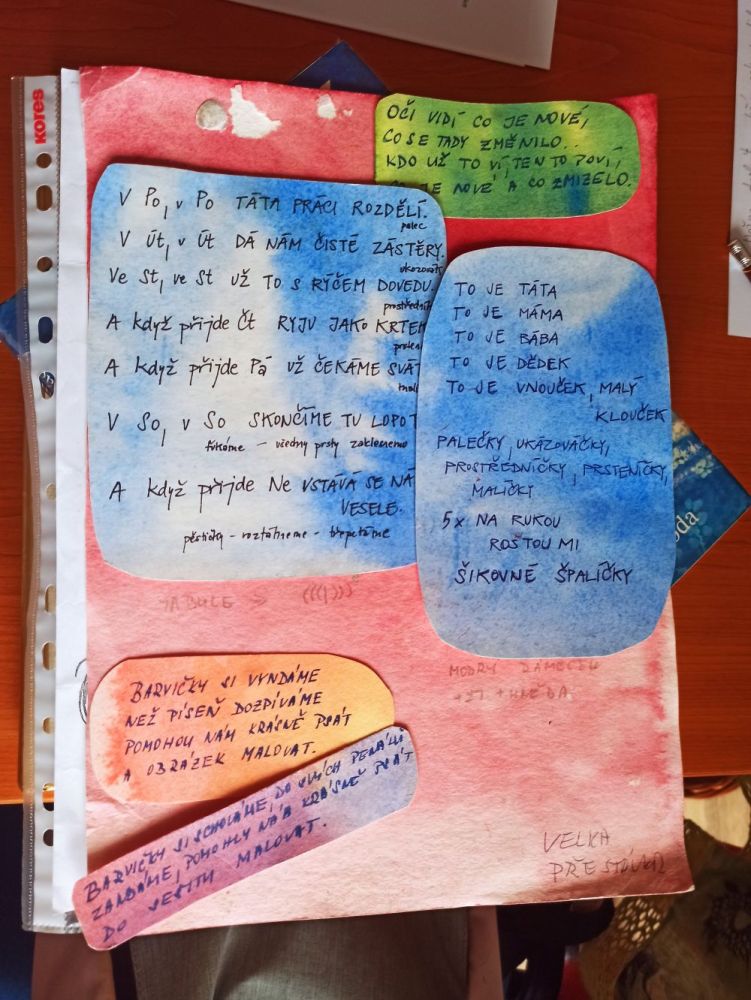 KORES
OČI VIDÍ CO JE NOVÉ,
CO SE TADY ZMĚNILO..
KDO UŽ TO VÍ, TEN TO POVÍ,
JE NOVÉ A CO ZMIZELO.
V Po, v Po TÁTA PRÁCI ROZDĚLÍ.
palec
V Út, v Út DÁ NÁM ČISTÉ ZÁSTĚRY.
ukazovák
Ve St, ve St UŽ TO S RÝČEM DOVEDU.
prostředník
A když přijde Čt RYJU JAKO KRTEK
A když přijde Pá UŽ ČEKÁME SVÁT
V So, v So SKONČÍME TU LOPOT
ťukáme - všechny prsty zaklesneme
A když přijde Ne VSTÁVÁ SE NÁ
VESELE.
pěstičky - roztáhneme - třepetáme
TABULE
TO JE TÁTA
TO JE MÁMA
TO JE BÁBA
TO JE DĚDEK
TO JE VNOUČEK, MALÝ
KLOUČEK
PALEČKY, UKAZOVÁČKY,
PROSTŘEDNÍČKY, PRSTENÍČKY,
MALÍČKY
5x NA RUKOU
ROSTOU MI
ŠIKOVNÉ ŠPALÍČKY
MODRÝ
oda
BARVIČKY SI VYNDÁME
NEŽ PÍSEŇ DOZPÍVÁME
POMOHOU NÁM KRÁSNĚ PSÁT
A OBRÁZEK MALOVAT.
BARVIČKY SI SCHOVÁME, DO SVÝCH PENÁLŮ
ZANDÁME, POMOHLY NÁM KRÁSNĚ PSÁT
DO SEŠITU MALOVAT.
VELKÁ
PŘESTÁVKA